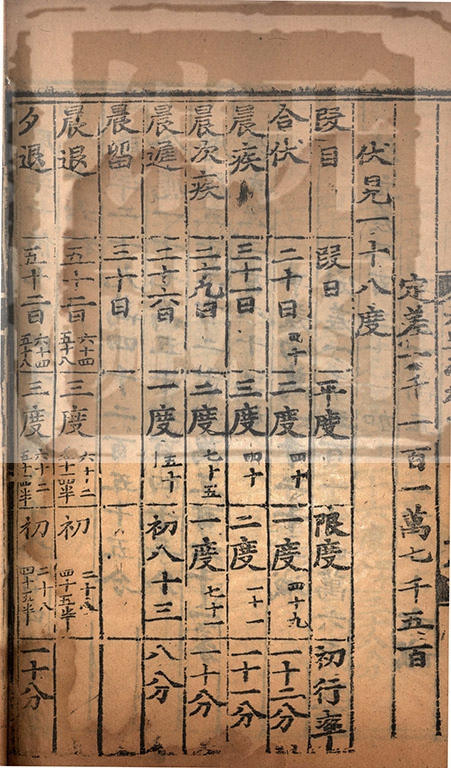 定差一千一百一萬七千五百
伏見一十八度
段目 段日 平度 限度 初行率
合伏 二十日四十 二度四十 一度四十九 一十二分
晨疾 三十一日 三度四十 二度一十一 一十一分
晨次疾 二十九日 二度七十五 一度七十一 一十分
晨遲 二十六日 一度五十 初八十三 八分
晨留 三十日
晨退 五十二日六十四五十八 三度六十二五十四半 初二十八四十五半
夕退 五十二日六十四五十八 三度六十二五十四半 初二十八四十五半 一十分